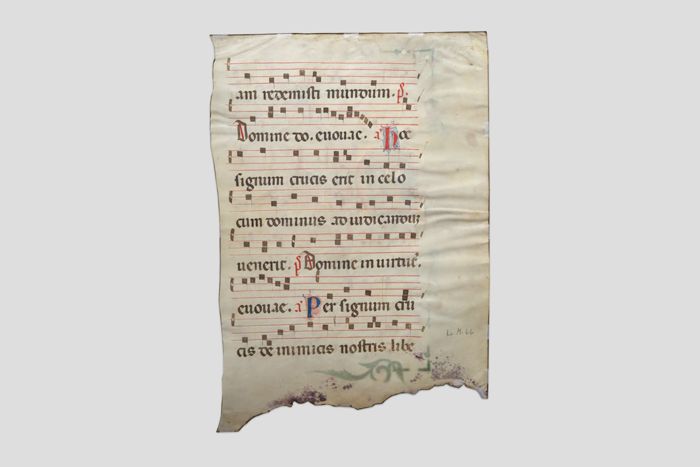 am redemisti mundum. p̃.
Domine do. euouae. a Hoc
signum crucis erit in celo
cum dominus ad iudicandum
uenerit. p̃ Domine in uirtut̃.
euouae. a Per signum cru
cis de inimicis nostris libe